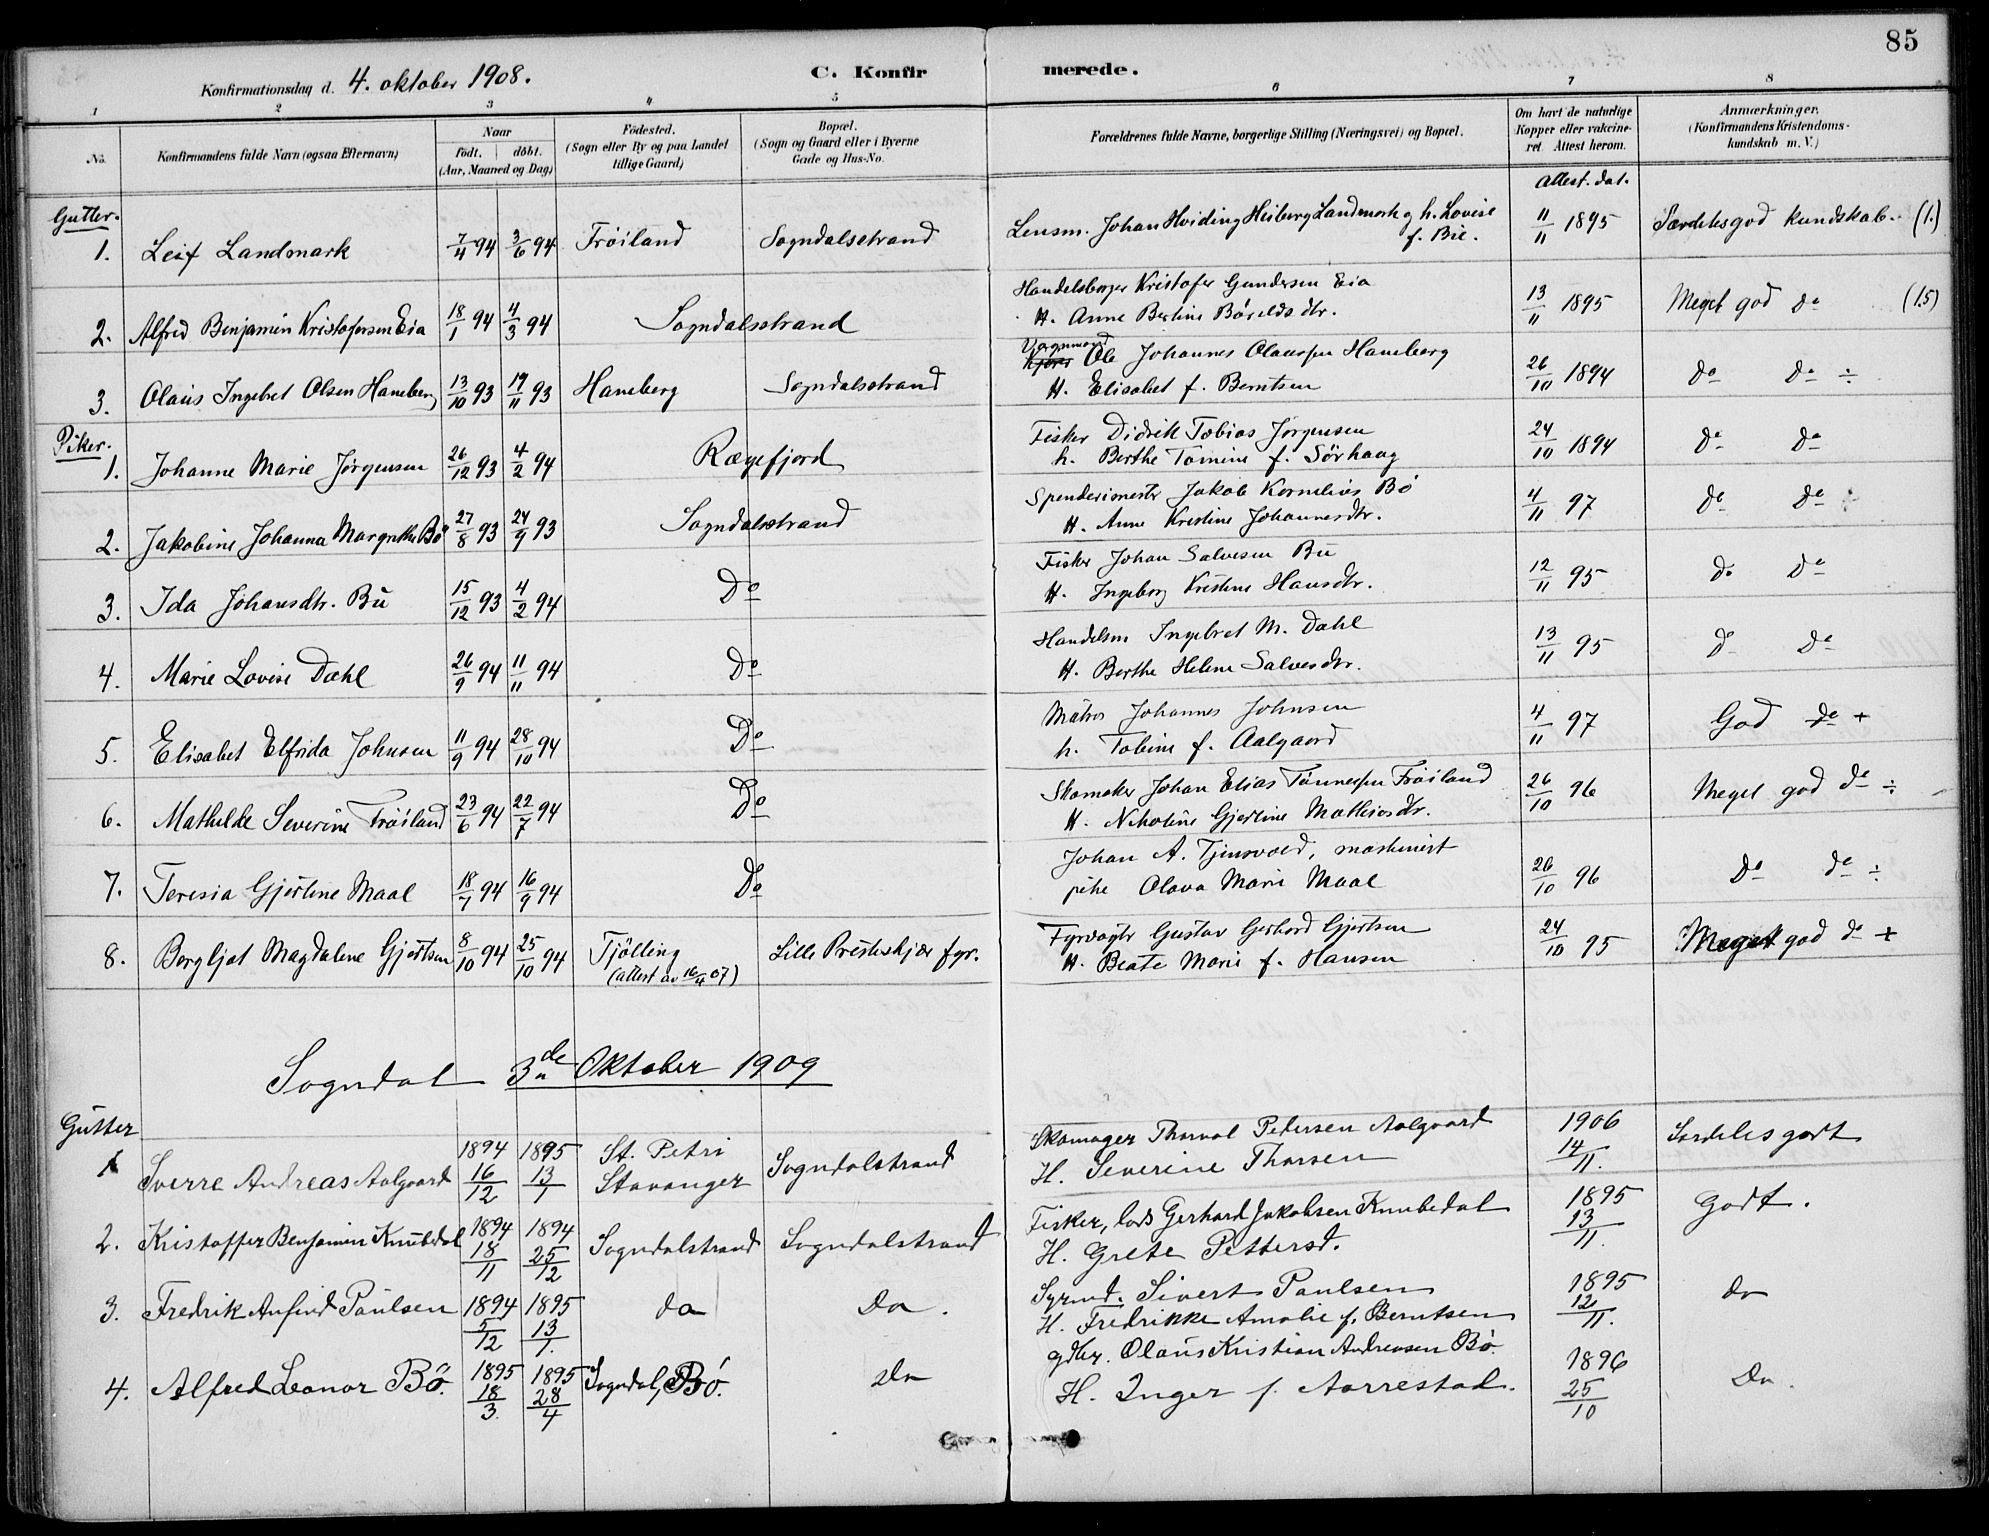 85
Konfirmationsdag d. 4. oktober 1908.
C. Konfirmerede.
1 2 3 4 5 6 7 8
No.
Konfirmandens fulde Navn (ogsaa Efternavn)
Naar
født. døbt.
(Aar, Maaned og Dag)
Fødested.
(Sogn eller By og paa Landet
tillige Gaard)
Bopæl.
(Sogn og Gaard eller i Byerne
Gade og Hus-No.
Forældrenes fulde Navne, borgerlige Stilling (Næringsvei) og Bopæl.
Om havt de naturlige
Kopper eller vakcine-
ret. Attest herom.
Anmærkninger.
(Konfirmandens Kristendoms-
kundskab m. V.)
Attest. dat.
Gutter.
1. Leif Landmark 7/4 94 3/6 94 Frøiland Sogndalsstrand Lensm. Johan Hviding Heiberg Landmark og h. Lovise
f. Bie. 11/11 1895 Særdelesgod kundskab. (1.)
2. Alfred Benjamin Kristofersen Eia 18/1 94 4/3 94 Sogndalsstrand Handelsborger Kristofer Gundersen Eia
H. Anne Bertine Bårelds dtr. 13/11 1895 Meget god do (1.5)
3. Olaus Ingebret Olsen Haneberg 13/10 93 19/11 93 Haneberg Sogndalsstrand Ole Johannes Olaussen Haneberg
H. Elisabet f. Berntsen 26/10 1894 do do ÷
Piker.
1. Johanne Marie Jørgensen 26/12 93 4/2 94 Rægefjord Fisker Didrik Tobias Jørgensen
h. Berthe Tomine f. Sörhaug 24/10 1894 do do
2. Jakobine Johanna Margrethe Bø 27/8 93 24/9 93 Sogndalsstrand Jakob Kornelius Bö
H. Anne Kristine Johannesdtr. 4/11 97 do do
3. Ida Johansdtr. Bu 15/12 93 4/2 94 Do Fisker Johan Salvesen Bu
H. Ingeborg Kristine Hansdtr. 12/11 95 do do
4. Marie Lovise Dahl 26/9 94 11/11 94 Do Handelsm Ingebret M. Dahl
H. Berthe Helene Salvesdtr. 13/11 95 do do
5. Elisabet Elfrida Johnsen 11/9 94 28/10 94 Do Matros Johannes Johnsen
h. Tobine f. Aalgaard 4/11 97 God do +
6. Mathilde Severine Frøiland 23/6 94 22/7 94 Do Skomaker Johan Elias Tönnessen Fröiland
H. Nikoline Gjertine Mathiasdtr. 26/10 96 Meget god do ÷
7. Teresia Gjertine Maal 18/7 94 16/9 94 Do Johan A. Tjensvold, maskinist
pike Olava Marie Maal 26/10 96 Do do ÷
8. Bergljot Magdalene Gjertsen 8/10 94 25/10 94 Tjölling
(attest av 16/4 07) Lille Presteskjær fyr. Fyrvogter Gustav Gerhard Gjertsen
H. Beate Marie f. Hansen 24/10 95 Meget god do +
Sogndal 3de Oktober 1909
Gutter
1 Sverre Andreas Aalgaard 1894 16/12 1895 13/1 St. Petri
Stavanger Sogndalstrand Skomager Thorval Pedersen Aalgaard
H. Severine Thorsen 1906 14/11. Særdeles godt
2. Kristoffer Benjamin Knubedal 1894 18/11 1894 25/12 Sogndalstrand Sogndalstrand Fisker, lods Gerhard Jakobsen Knubedal
H. Grete Pettersd. 1895 13/11. Godt.
3. Fredrik Anfind Paulsen 1894 5/12 1895 13/1. do Do. Sivert Paulsen
H. Fredrikke Amalie f. Berntsen 1895 12/11. Do
4. Alfred Leonor Bö. 1895 18/3 1895 28/4 Sogndal, Bö. Do gdbr. Olaus Kristian Andreasen Bö.
H. Inger f. Aarrestad. 1896 25/10 Do.